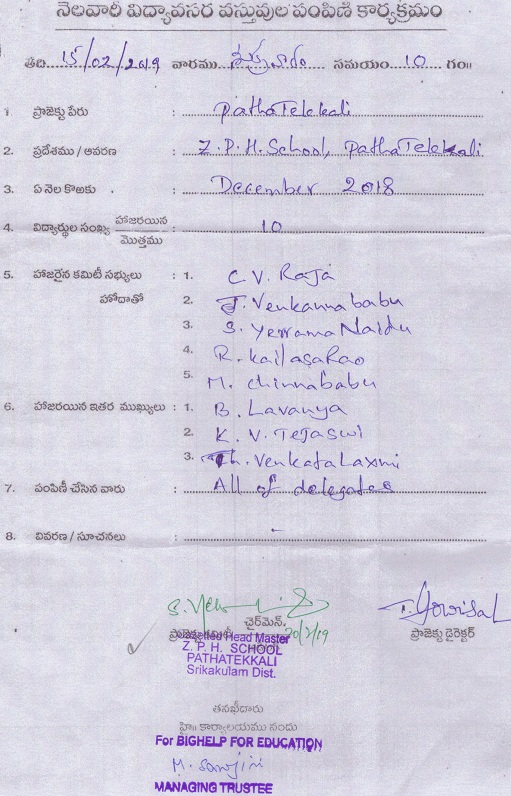 నెలవారీ విద్యావసర వస్తువుల పంపిణీ కార్యక్రమం
తేది 15/02/2019 వారము శుక్రవారం సమయం 10 గం॥
1. ప్రాజెక్టు పేరు : Patha Tekkali
2. ప్రదేశము / ఆవరణ : Z.P.H. School, Patha Tekkali
3. ఏ నెల కొఱకు : December 2018
4. విద్యార్థుల సంఖ్య హాజరయిన / మొత్తము : 10
5. హాజరైన కమిటీ సభ్యులు : 1. C V. Raja
హోదాతో 2. J. Venkanna babu
3. S. Yerrama Naidu
4. R. Kailasa Rao
5. M. Chinnababu
6. హాజరయిన ఇతర ముఖ్యులు : 1. B. Lavanya
2. K. V. Tejaswi
3. Th. Venkata Laxmi
7. పంపిణీ చేసిన వారు : All of delegates
8. వివరణ / సూచనలు : -
చైర్‌మెన్,
ప్రాజెక్టు డైరెక్టర్
Head Master
Z. P. H. SCHOOL
PATHATEKKALI
Srikakulam Dist.
తనఖీదారు
హె॥ కార్యాలయము నందు
For BIGHELP FOR EDUCATION
M. Sanjini
MANAGING TRUSTEE